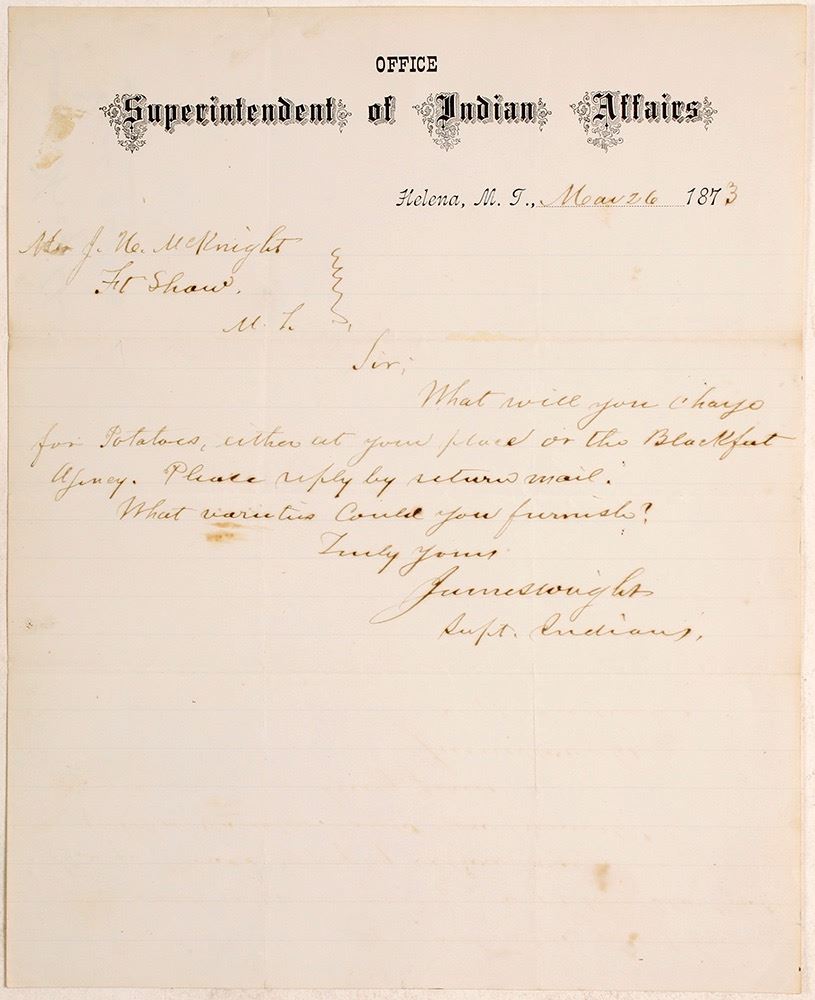 OFFICE
Superintendent of Indian Affairs
Helena, M. T., Mar 26 1873
Mr J. H. McKnight
Ft Shaw,
M. T.
Sir;
What will you charge
for Potatoes, either at your place or the Blackfeet
Agency. Please reply by return mail.
What varieties Could you furnish?
Truly yours
James Wright
Supt. Indians,